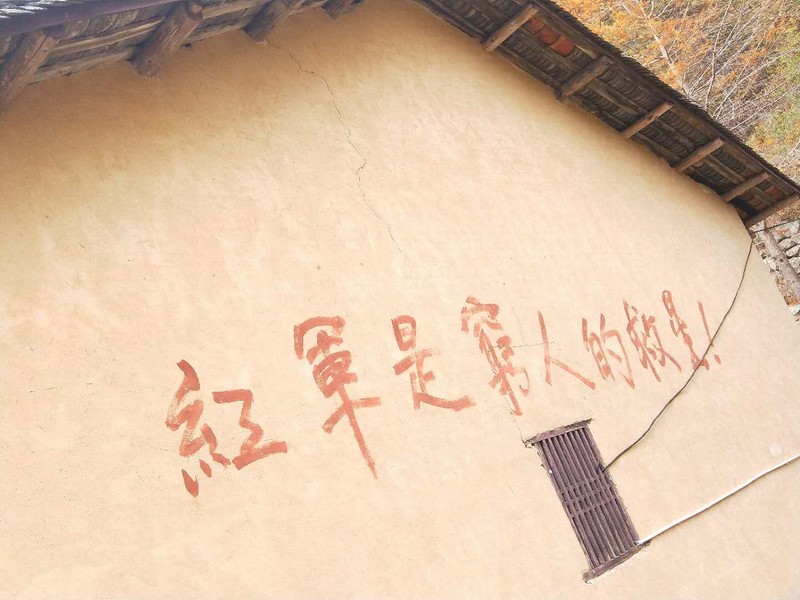 紅軍是窮人的救星!